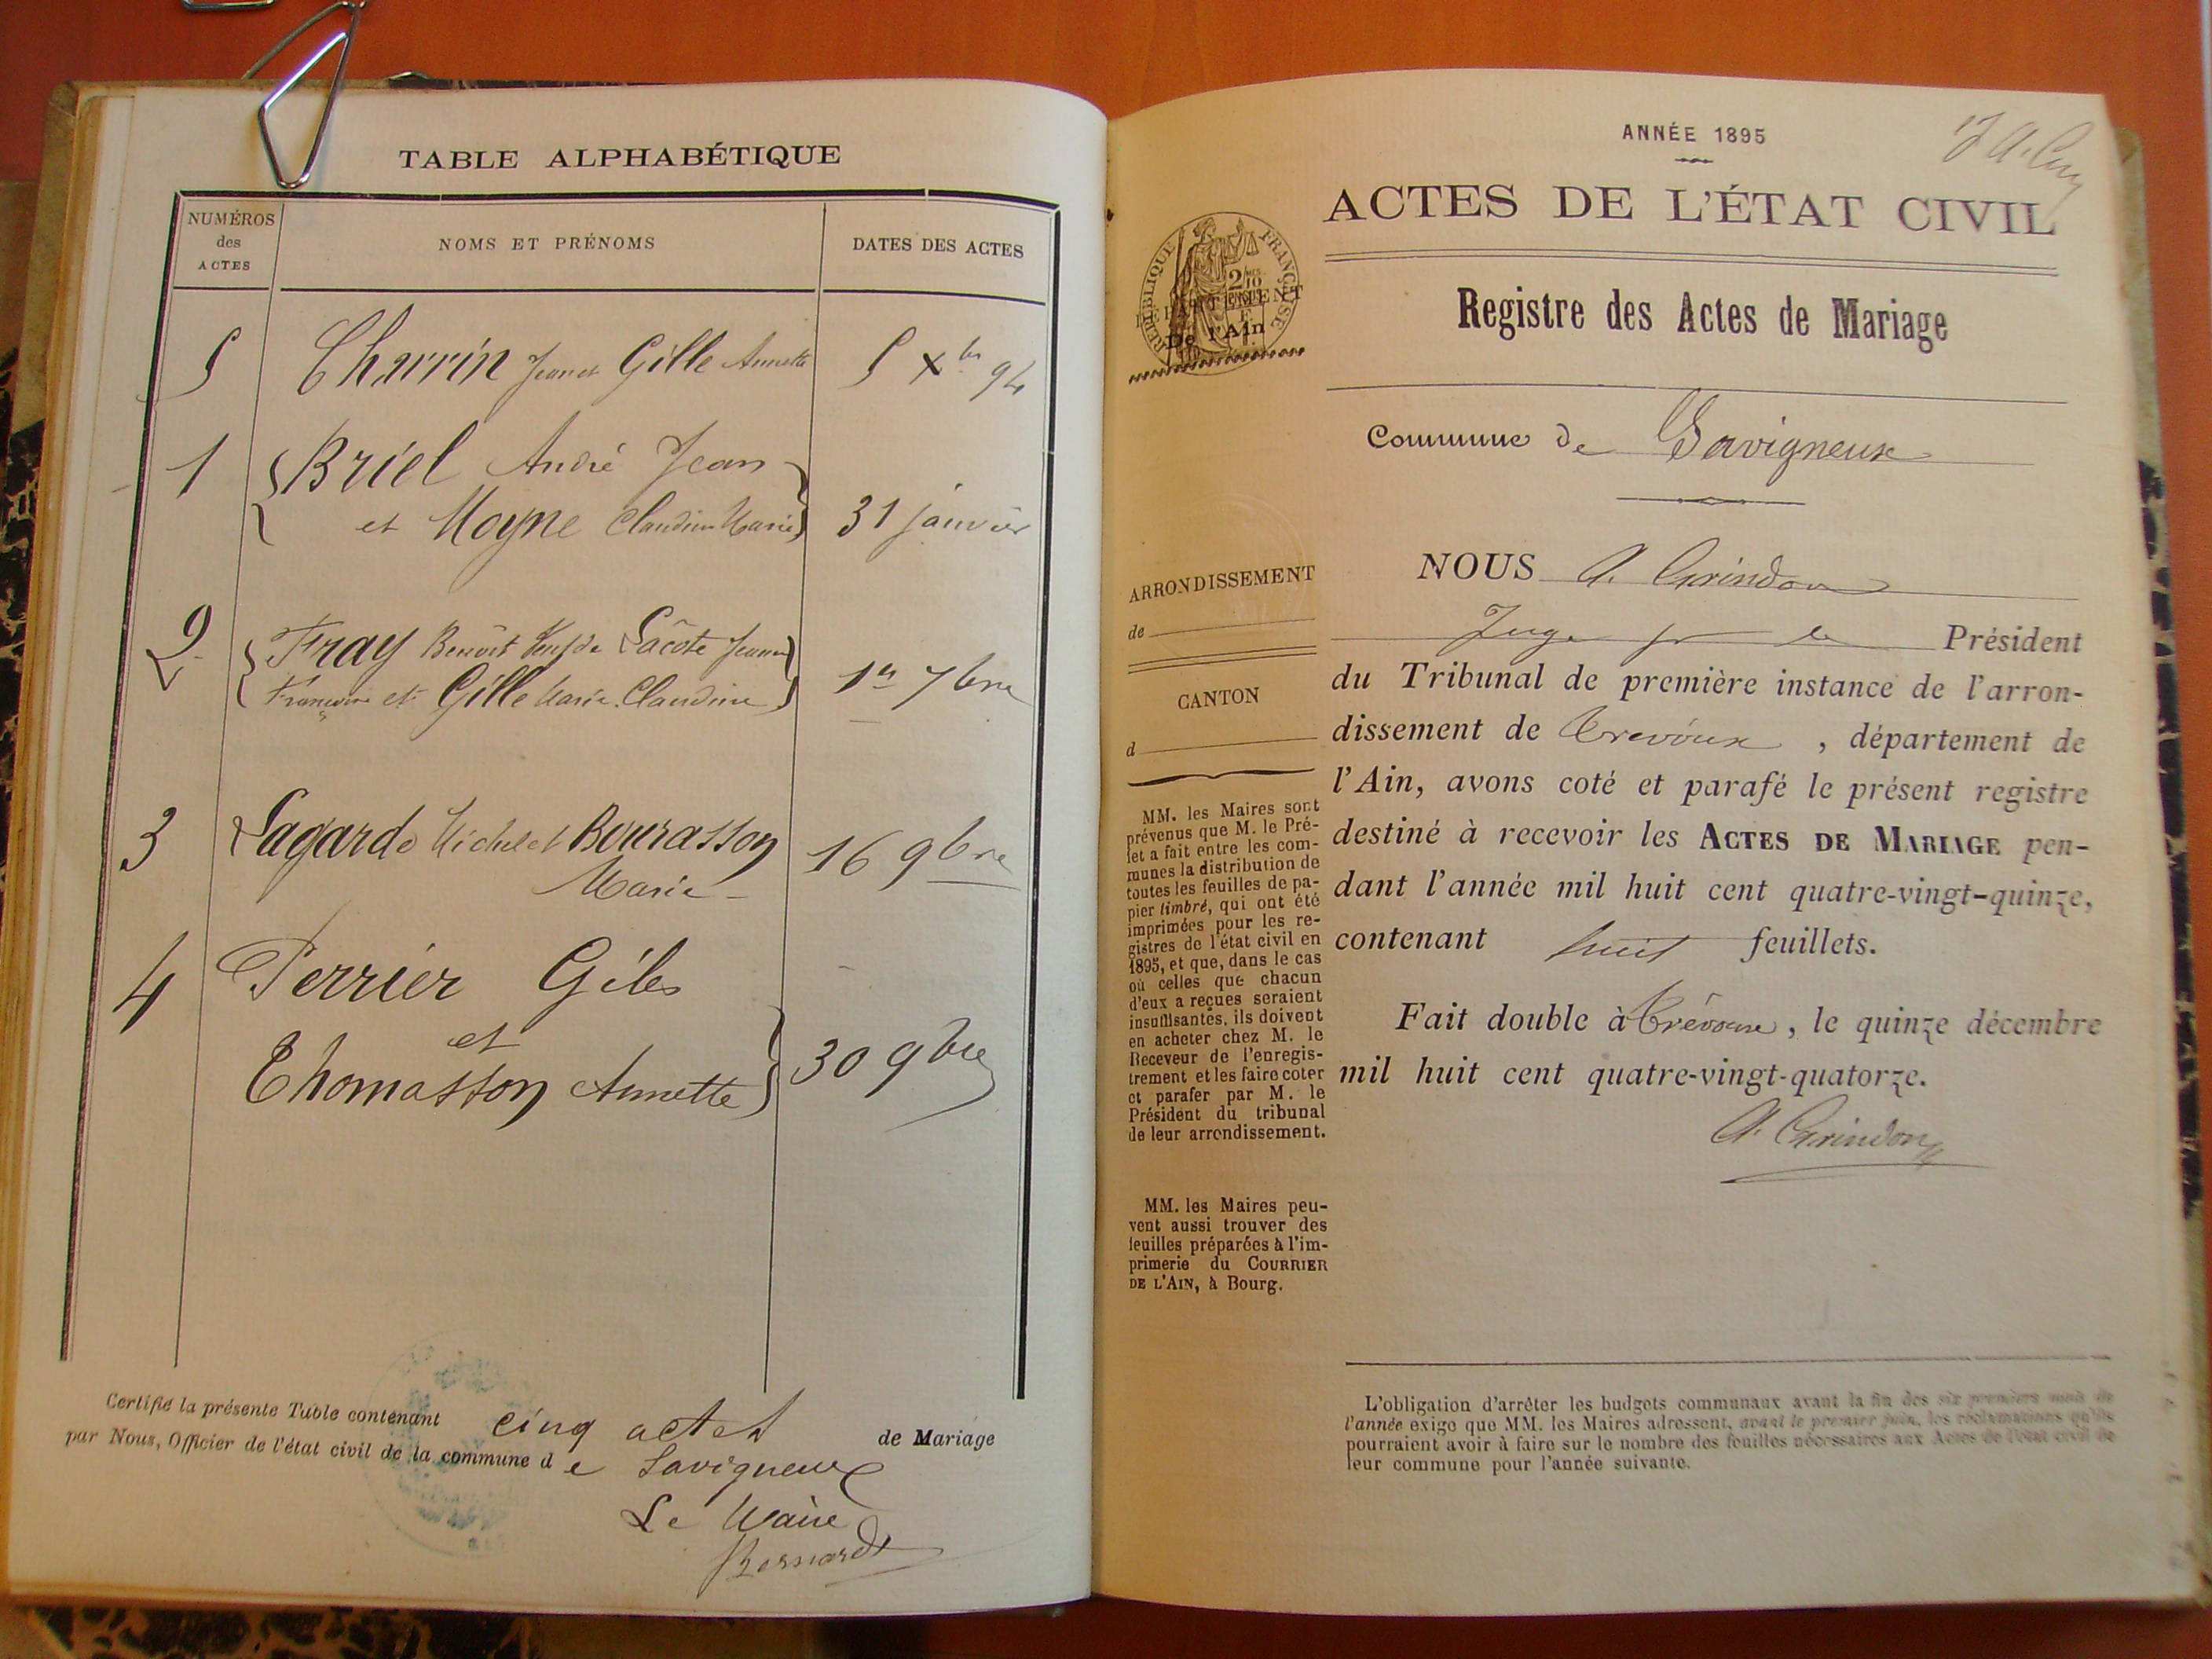 TABLE ALPHABÉTIQUE
NUMÉROS
des
ACTES
NOMS ET PRÉNOMS
DATES DES ACTES
5 Charrin Jean et Gille Annette 5 Xbre 94
1 Briel André Jean
et Moyne Claudine Marie 31 janvier
2 Fray Benoît Lacôte Jeanne
Françoise et Gille Marie Claudine 1er 7bre
3 Lagarde Michel et Bourasson 16 9bre
Marie
4 Perrier Giles
et
Thomasson Annette 30 9bre
Certifié la présente Table contenant cinq actes de Mariage
par Nous, Officier de l'état civil de la commune de Savigneux
Le Maire
Bernard
ANNÉE 1895
ACTES DE L'ÉTAT CIVIL
RÉPUBLIQUE FRANÇAISE
DÉPARTEMENT
De l'Ain
Registre des Actes de Mariage
Commune de Savigneux
ARRONDISSEMENT
de
CANTON
d
MM. les Maires sont
prévenus que M. le Pré-
fet a fait entre les com-
munes la distribution de
toutes les feuilles de pa-
pier timbré, qui ont été
imprimées pour les re-
gistres de l'état civil en
1895, et que, dans le cas
où celles que chacun
d'eux a reçues seraient
insuffisantes, ils doivent
en acheter chez M. le
Receveur de l'enregis-
trement et les faire coter
et parafer par M. le
Président du tribunal
de leur arrondissement.
MM. les Maires peu-
vent aussi trouver des
feuilles préparées à l'im-
primerie du COURRIER
DE L'AIN, à Bourg.
NOUS A. Grindon
Juge pr le Président
du Tribunal de première instance de l'arron-
dissement de Trevoux, département de
l'Ain, avons coté et parafé le présent registre
destiné à recevoir les ACTES DE MARIAGE pen-
dant l'année mil huit cent quatre-vingt-quinze,
contenant huit feuillets.
Fait double à Trévoux, le quinze décembre
mil huit cent quatre-vingt-quatorze.
A. Grindon
L'obligation d'arrêter les budgets communaux avant la fin des six premiers mois de
l'année exige que MM. les Maires adressent, avant le premier juin, les réclamations qu'ils
pourraient avoir à faire sur le nombre des feuilles nécessaires aux Actes de l'état civil de
leur commune pour l'année suivante.